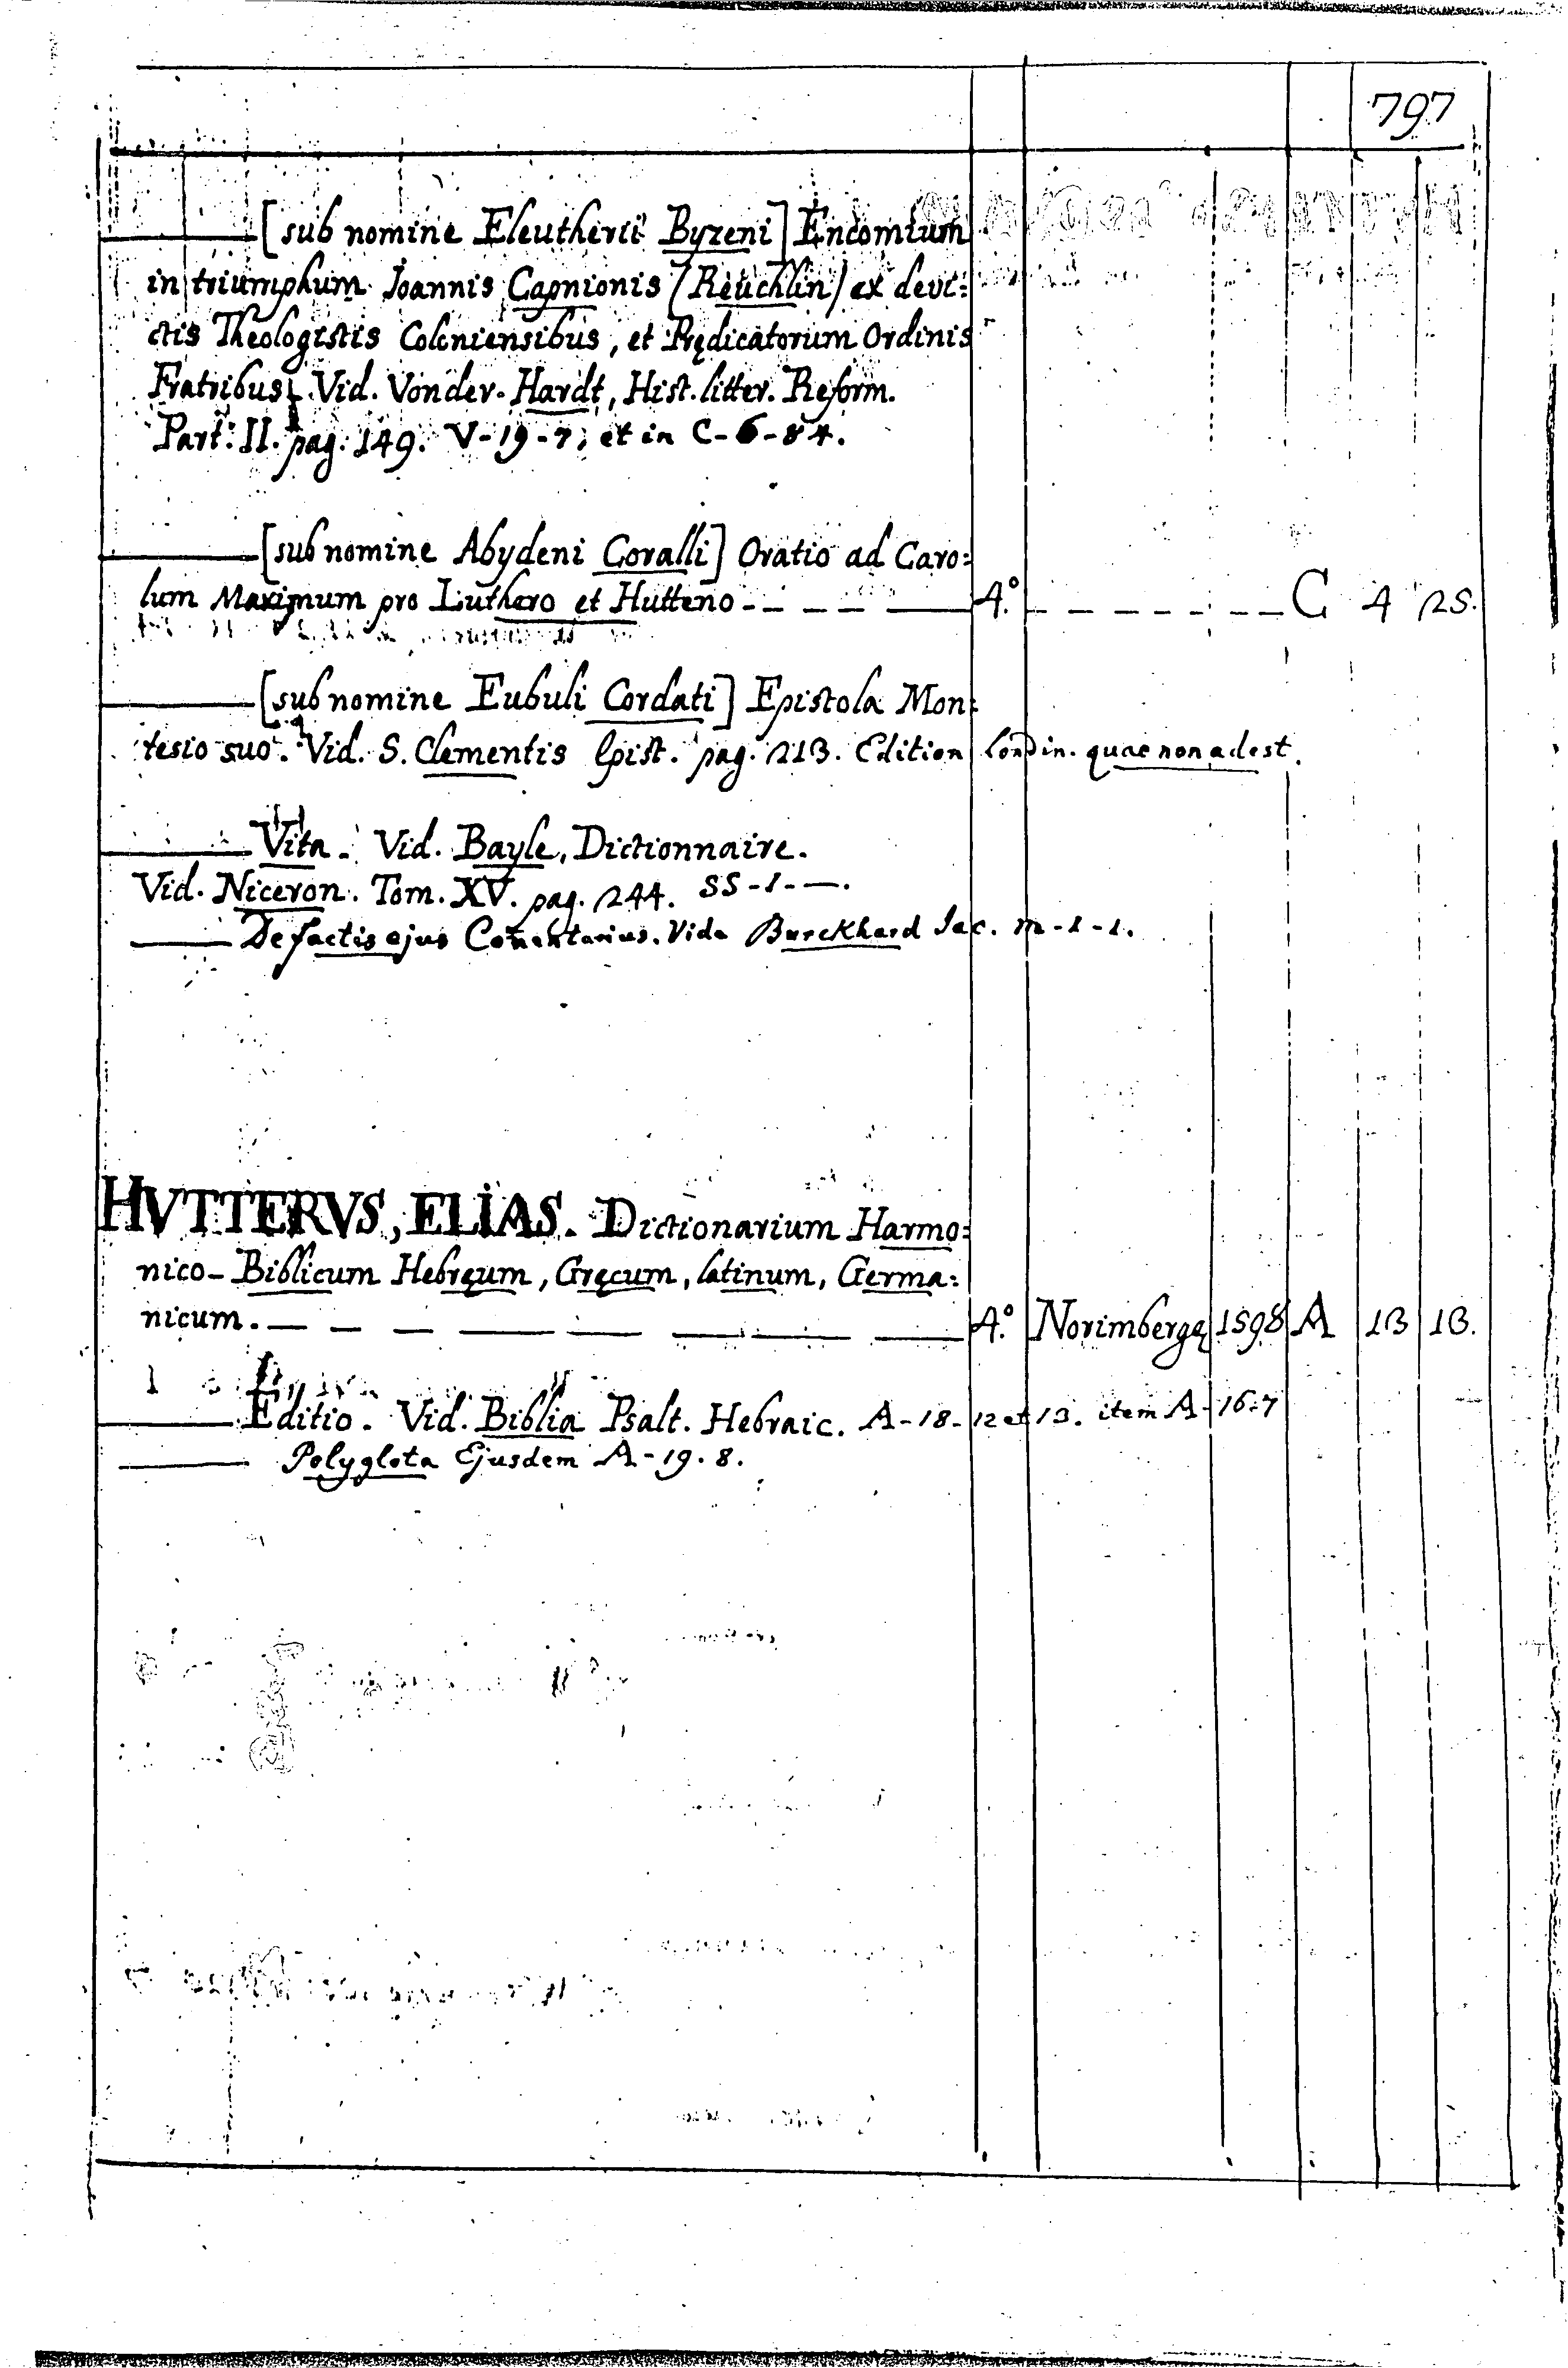 797
——— [sub nomine Eleutherii Byzeni] Encomium
in triumphum Joannis Capnionis (Reuchlin) ex devi=
ctis Theologistis Coloniensibus, et Prędicatorum Ordinis
Fratribus. Vid. Vonder-Hardt, Hist. litter. Reform.
Part. II. pag. 149. V-19-7, et in C-6-84.
——— [sub nomine Abydeni Coralli] Oratio ad Caro=
lum Maximum pro Luthero et Hutteno - - - - — 4.° - - - - - - - C 4 25.
——— [sub nomine Eubuli Cordati] Epistola Mon=
tesio suo. Vid. S. Clementis Epist. pag. 213. Edition Londin. quae non adest.
——— Vita. Vid. Bayle, Dictionnaire.
Vid. Niceron. Tom. XV. pag. 244. SS-1-—.
——— De factis ejus Comentarius. Vide Burckhard Jac. m-1-1.
HVTTERVS, ELIAS. Dictionarium Harmo=
nico-Biblicum Hebręum, Gręcum, latinum, Germa=
nicum. — — — — — — — 4.° Norimbergę 1598 A 13 13.
——— Editio. Vid. Biblia Psalt. Hebraic. A-18-12 et 13. item A-16-7
——— Polyglota Ejusdem A-19.8.